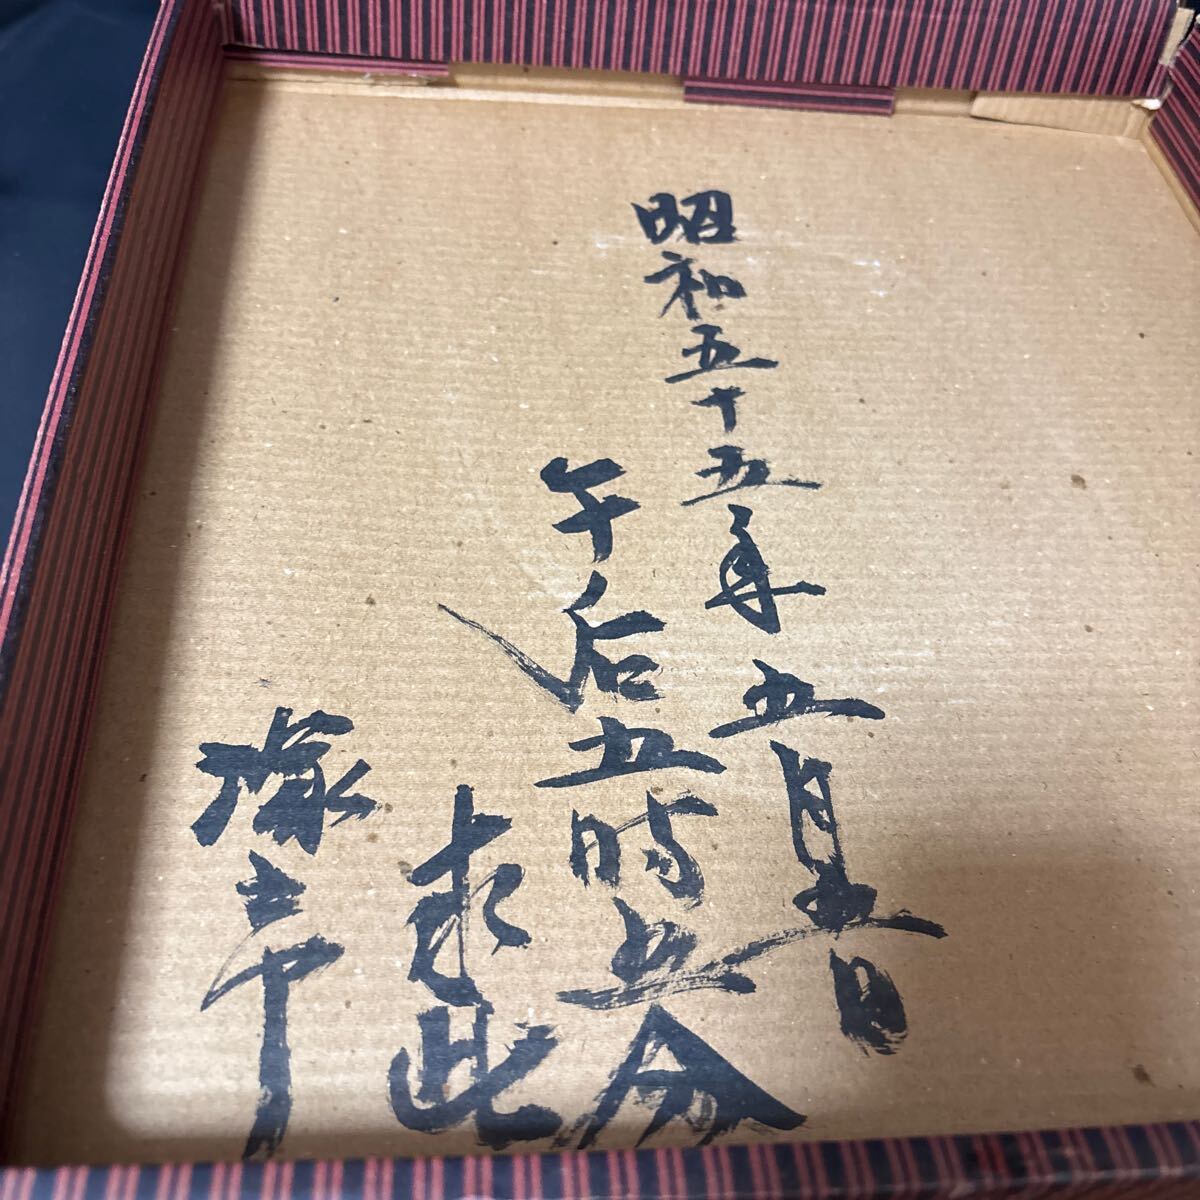 昭和五十五年五月五日
午后五時五分
求此
塚立